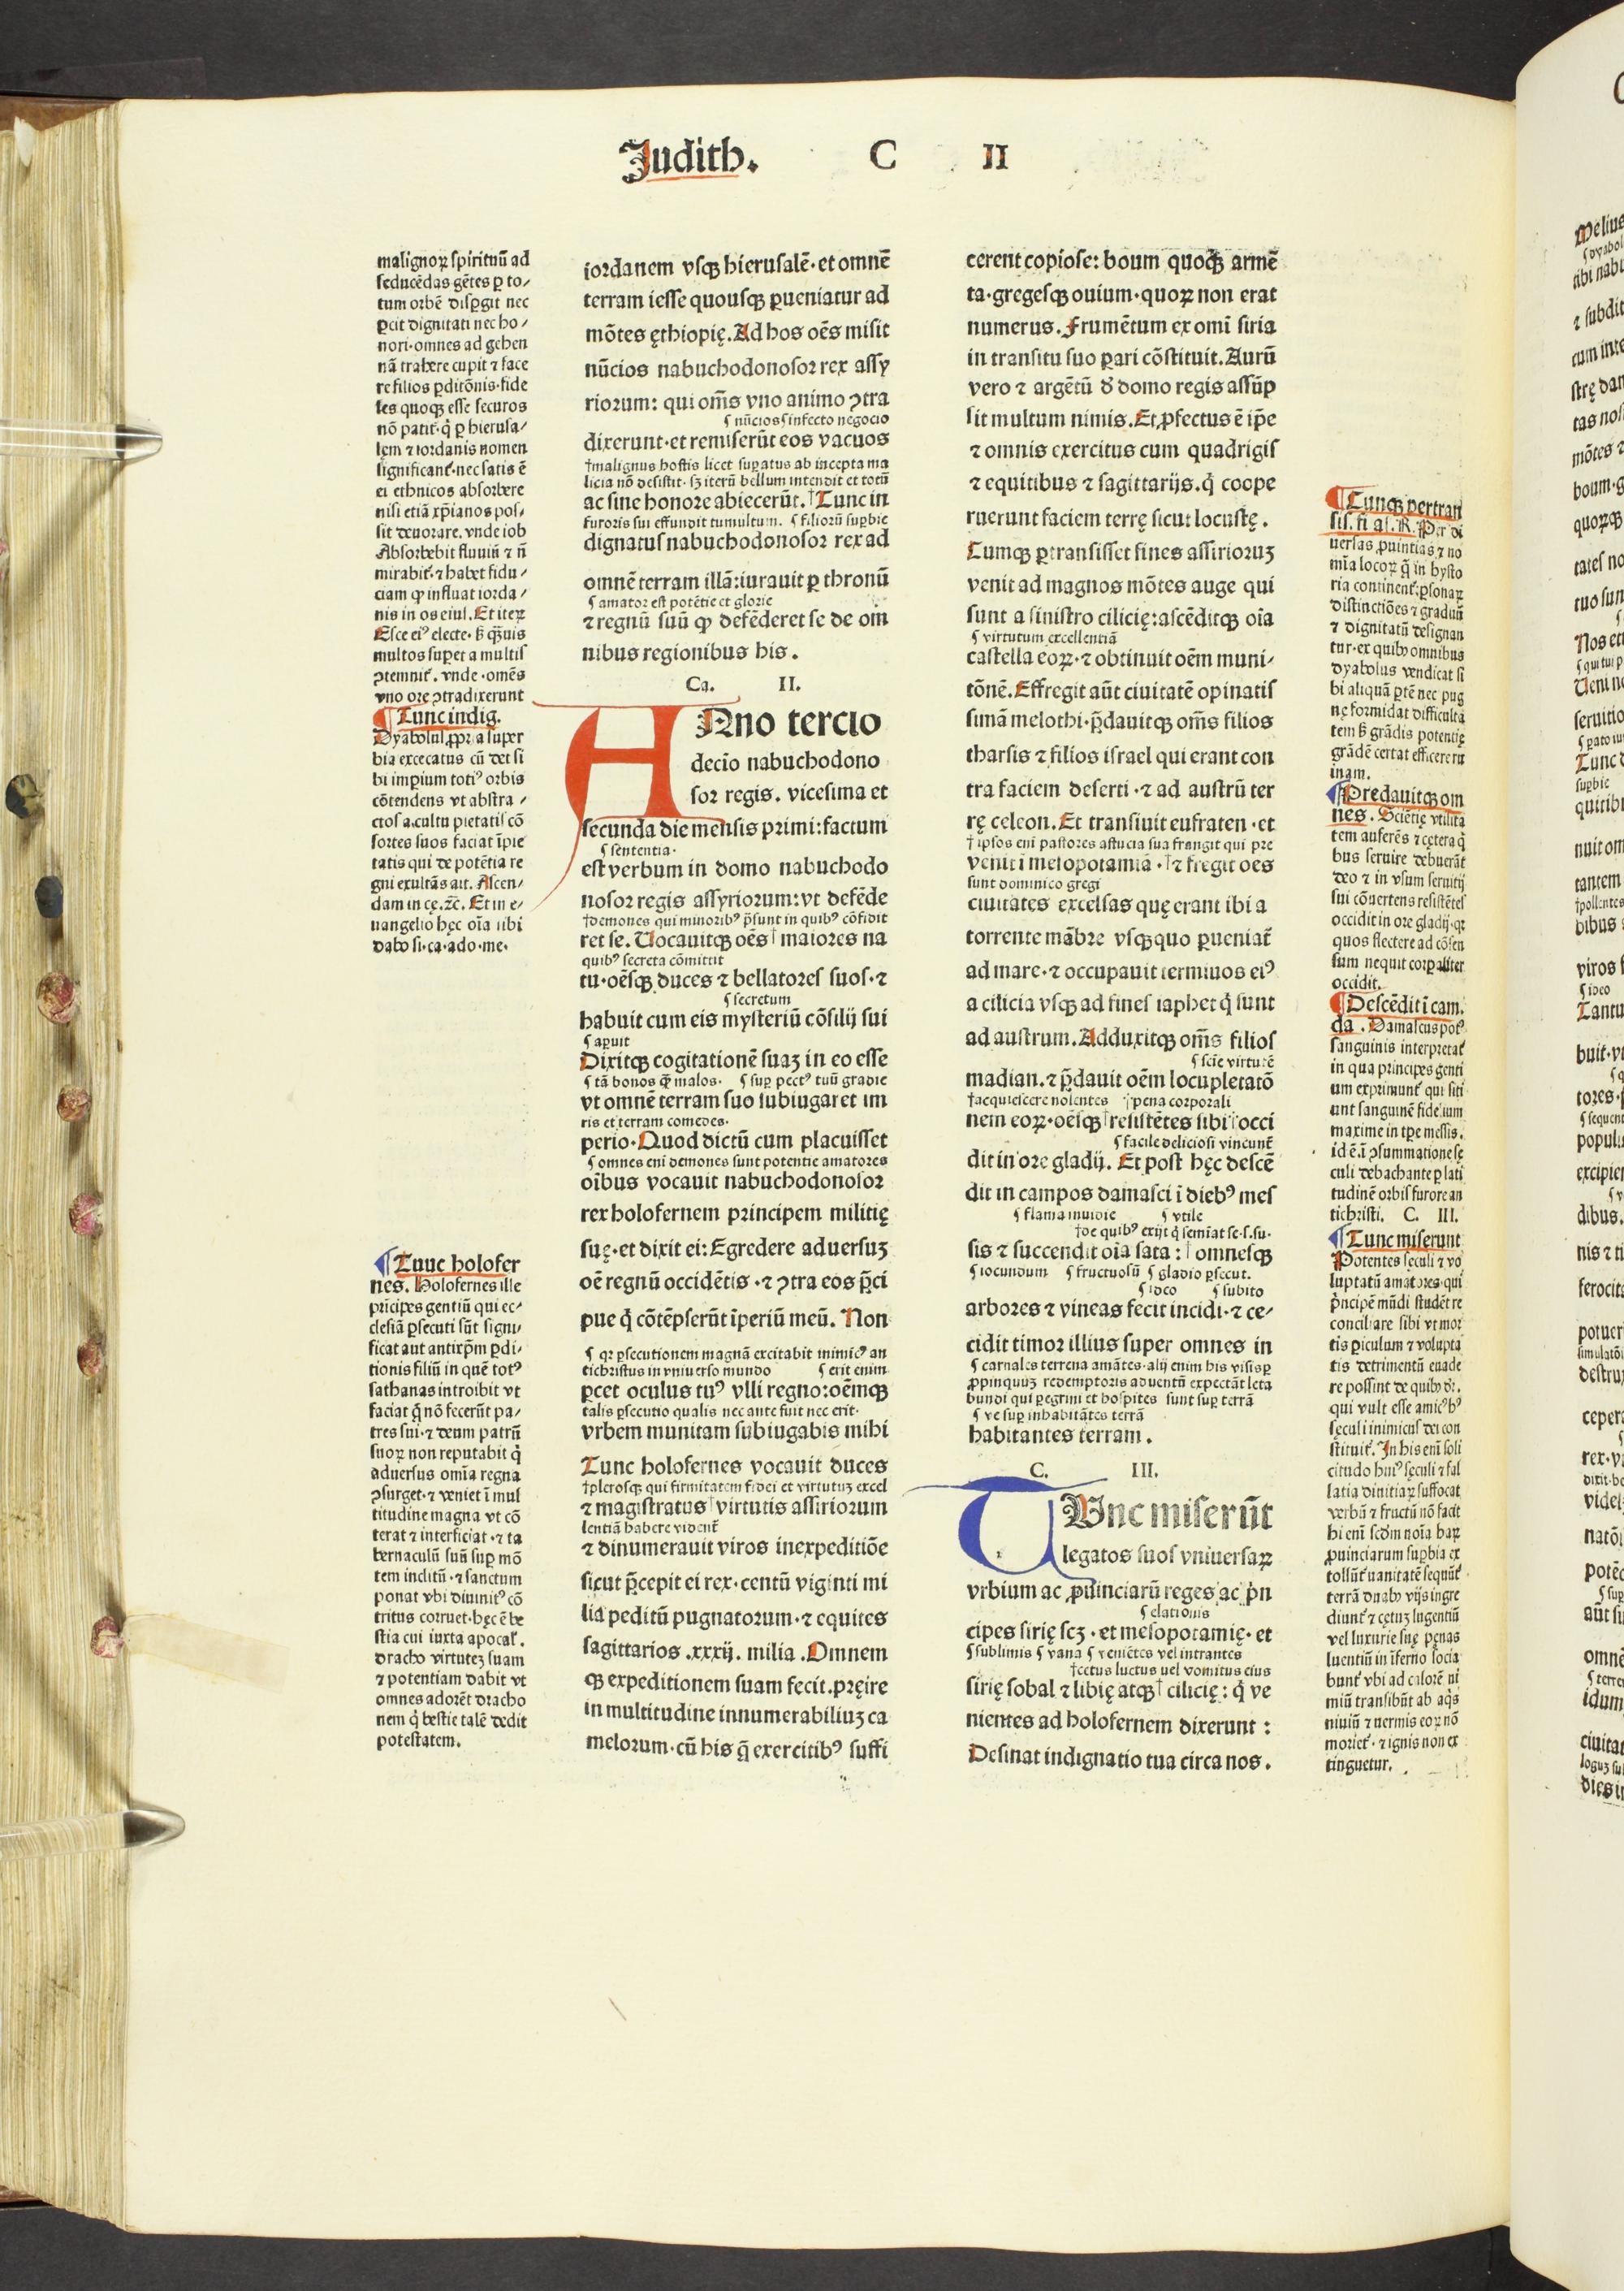 Judith. C II
malignoꝝ spirituū ad
seducēdas gētes ꝑ to/
tum orbē disꝑgit nec
ꝑcit dignitati nec ho/
nori·omnes ad gehen
nā trahere cupit ⁊ face
re filios ꝑditōnis·fide
les quoqꝫ esse securos
nō patit᷑·q̇ ꝑ hierusa/
lęm ⁊ iordanis nomen
significant᷑·nec satis ē
ei ethnicos absorbere
nisi etiā xp̄ianos pos/
sit deuorare. vnde iob
Absorbebit fluuiū ⁊ nō
mirabit᷑·⁊ habet fidu/
ciam ꝙ influat iorda/
nis in os eius. Et iteꝝ
Esce eiꝰ electe·
multos superet a multis
ↄtemnit᷑. vnde·omēs
vno ore ↄtradixerunt
¶ Tunc indig.
Dyabolus ꝓpria super
bia excecatus cū det si
bi imꝑium totiꝰ orbis
cōtendens vt abstra/
ctos a cultu pietatis cō
sortes suos faciat īpie
tatis qui de potētia re
gni exultās ait. Ascen/
dam in cę. ⁊c̄. Et in e/
uangelio hęc oīa tibi
dabo si·ca·ado·me·
¶ Tunc holofer
nes. Holofernes ille
prīcipes gentiū qui ec/
clesiā ꝑsecuti sūt signi/
ficat aut antixp̄m ꝑdi/
tionis filiū in quē totꝰ
sathanas introibit vt
faciat q̄ nō fecerūt pa/
tres sui·⁊ deum patrū
suoꝝ non reputabit q̇
aduersus omīa regna
ↄsurget·⁊ veniet ī mul
titudine magna vt cō
terat ⁊ interficiat·⁊ ta
bernaculū suū suꝑ mō
tem inclitū·⁊ sanctum
ponat vbi diuinitꝰ cō
tritus corruet·hęc ē be
stia cui iuxta apocal᷑.
dracho virtutēꝫ suam
⁊ potentiam dabit vt
omnes adorēt dracho
nem q̇ bestie talē dedit
potestatem.
iordanem vsqꝫ hierusalē·et omnē
terram iesse quousqꝫ ꝑueniatur ad
mōtes ęthiopię. Ad hos oēs misit
nūcios nabuchodonosor rex assy
riorum: qui om̄s vno animo ↄtra
¶ nūcios ¶ infecto negocio
dixerunt·et remiserūt eos vacuos
†malignus hostis licet suꝑatus ab incepta ma
licia nō desistit·sꝫ iterū bellum intendit et totū
ac sine honore abiecerūt. †Tunc in
furoris sui effundit tumultum. ¶ filiorū suꝑbie
dignatus nabuchodonosor rex ad
omnē terram illā:iurauit ꝑ thronū
¶ amator est potētie et glorie
⁊ regnū suū ꝙ defēderet se de om
nibus regionibus his.
Ca. II.
Anno tercio
decīo nabuchodono
sor regis. vicesima et
secunda die mensis primi:factum
¶ sententia·
est verbum in domo nabuchodo
nosor regis assyriorum:vt defēde
†demones qui minoribꝰ p̄sunt in quibꝰ cōfidit
ret se. Uocauitqꝫ oēs † maiores na
quibꝰ secreta cōmittit
tu·oēsqꝫ duces ⁊ bellatores suos·⁊
¶ secretum
habuit cum eis mysteriū cōsilij sui
¶ aꝑuit
Dixitqꝫ cogitationē suaꝫ in eo esse
¶ tā bonos q̄ꝫ malos· ¶ suꝑ pectꝰ tuū gradie
vt omnē terram suo subiugaret im
ris et terram comedes·
perio·Quod dictū cum placuisset
¶ omnes eni demones sunt potentie amatores
oībus vocauit nabuchodonosor
rex holofernem principem militię
suę·et dixit ei: Egredere aduersuꝫ
oē regnū occidētis·⁊ ↄtra eos p̄ci
pue q̇ cōtēpserūt īperiū meū. Non
¶ qꝛ ꝑsecutionem magnā excitabit inimicꝰ an
tichristus in vniuerso mundo ¶ erit enim
ꝑcet oculus tuꝰ vlli regno:oēmqꝫ
talis ꝑsecutio qualis nec ante fuit nec erit·
vrbem munitam subiugabis mihi
Tunc holofernes vocauit duces
†plerosqꝫ qui firmitatem fidei et virtutuꝫ excel
⁊ magistratus†virtutis assiriorum
lentiā habere vident᷑
⁊ dinumerauit viros inexpeditiōe
sicut p̄cepit ei rex·centū viginti mi
lia peditū pugnatorum·⁊ equites
sagittarios .xxxij. milia .Omnem
qꝫ expeditionem suam fecit.pręire
in multitudine innumerabiliuꝫ ca
melorum·cū his q̄ exercitibꝰ suffi
cerent copiose: boum quoqꝫ armē
ta·gregesqꝫ ouium·quoꝝ non erat
numerus. Frumētum ex omī siria
in transitu suo ꝑari cōstituit. Aurū
vero ⁊ argētū đ domo regis assūp
sit multum nimis. Et ꝓfectus ē ip̄e
⁊ omnis exercitus cum quadrigis
⁊ equitibus ⁊ sagittarijs. q̇ coope
ruerunt faciem terrę sicut locustę.
Cumqꝫ ꝑtransisset fines assirioruꝫ
venit ad magnos mōtes auge qui
sunt a sinistro cilicię:ascēditqꝫ oīa
¶ virtutum excellentiā
castella eoꝝ·⁊ obtinuit oēm muni/
tōnē. Effregit aūt ciuitatē opinatis
simā melothi·p̄dauitqꝫ om̄s filios
tharsis ⁊ filios israel qui erant con
tra faciem deserti·⁊ ad austrū ter
rę celeon. Et transiuit eufraten·et
† ipsos eni pastores astucia sua frangit qui pre
venit ī mesopotamiā·†⁊ fregit oēs
sunt dominico gregi
ciuitates excelsas quę erant ibi a
torrente mābre vsqꝫquo ꝑueniat᷑
ad mare·⁊ occupauit terminos eiꝰ
a cilicia vsqꝫ ad fines iaphet q̇ sunt
ad austrum. Adduxitqꝫ om̄s filios
¶ scīe virtutē
madian.⁊ p̄dauit oēm locupletatō
†acquiescere nolentes ¶ pena corporali
nem eoꝝ·oēsqꝫ†resistētes sibi occi
¶ facile deliciosi vincunt᷑
dit in ore gladij. Et post hęc descē
dit in campos damasci ī diebꝰ mes
¶ flama inuidie ¶ vtile
†de quibꝰ exijt q̇ semīat se·s·su·
sis ⁊ succendit oīa sata: † omnesqꝫ
¶ iocundum ¶ fructuosū ¶ gladio ꝑsecut.
¶ ideo ¶ subito
arbores ⁊ vineas fecit incidi·⁊ ce/
cidit timor illius super omnes in
¶ carnales terrena amātes·alij enim his visis ꝑ
ꝓpinquuꝫ redemptoris aduentū expectāt leta
bundi qui ꝑegrini et hospites sunt suꝑ terrā
¶ ve suꝑ inhabitātes terrā
habitantes terram.
C. III.
TUnc miserūt
legatos suos vniuersaꝝ
vrbium ac ꝓuinciarū reges ac ṗn
¶ elationis
cipes sirię scꝫ·et mesopotamię·et
¶ sublimis ¶ vana ¶ veniētes vel intrantes
†cetus luctus uel vomitus eius
sirię sobal ⁊ libię atqꝫ† cilicię: q̇ ve
nientes ad holofernem dixerunt :
Desinat indignatio tua circa nos.
¶ Cumqꝫ pertran
sis. fi. as. R. Per di
uersas ꝓuintias ⁊ no
mīa locoꝝ q̄ in hysto
ria continent᷑:ꝑsonaꝝ
distinctiōes ⁊ graduū
⁊ dignitatū designan
tur·ex quibꝰ omnibus
dyabolus vendicat si
bi aliquā ꝑtē nec pug
nę formidat difficulta
tem sꝫ grādis potentię
grādē certat efficere ru
inam.
¶ Predauitqꝫ om
nes. Sciētię vtilita
tem auferēs ⁊ cętera q̇
bus seruire debuerāt
deo ⁊ in vsum seruitij
sui cōuertens resistētes
occidit in ore gladij·qꝛ
quos flectere ad cōsen
sum nequit corꝑaliter
occidit.
¶ Descēdit ī cam.
da. Damascus potꝰ
sanguinis interpretat᷑
in qua principes genti
um exprimunt᷑ qui siti
unt sanguinē fidelium
maxime in tꝑe messis.
id ē.ī ↄsummatione sę
culi debachante ꝑ lati
tudinē orbis furore an
tichristi. C. III.
¶ Tunc miserunt
Potentes sęculi ⁊ vo
luptatū amatores·qui
ṗncipē mūdi studēt re
conciliare sibi vt mor
tis ꝑiculum ⁊ volupta
tis detrimentū euade
re possint de quibꝰ dr̄.
qui vult esse amicꝰ hꝰ
sęculi inimicus dei con
stituit᷑. In his enī soli
citudo huiꝰ sęculi ⁊ fal
latia diuitiaꝝ suffocat
verbū ⁊ fructū nō facit
hi enī scd̄m noīa haꝝ
ꝓuinciarum suꝑbia ex
tollūt᷑ uanitatē sequūt᷑
terrā duabꝰ vijs ingre
diunt᷑ ⁊ cętuꝫ lugentiū
vel luxurie suę pęnas
luentiū in īferno socia
bunt᷑ vbi ad calorē ni
miū transibūt ab aq̇s
niuiū ⁊ uermis eoꝝ nō
moriet᷑·⁊ ignis non ex
tinguetur.